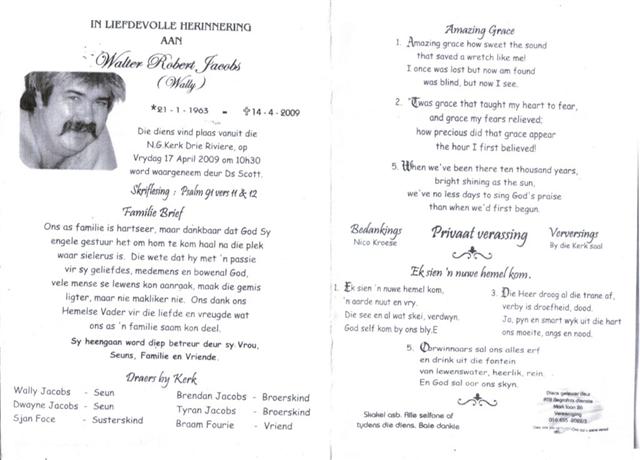 IN LIEFDEVOLLE HERINNERING
AAN
Walter Robert Jacobs
(Wally)
*21 - 1 - 1963 - ✞14 - 4 - 2009
Die diens vind plaas vanuit die
N.G.Kerk Drie Riviere, op
Vrydag 17 April 2009 om 10h30
word waargeneem deur Ds Scott.
Skriflesing : Psalm 91 vers 11 & 12
Familie Brief
Ons as familie is hartseer, maar dankbaar dat God Sy
engele gestuur het om hom te kom haal na die plek
waar sielerus is. Die wete dat hy met 'n passie
vir sy geliefdes, medemens en bowenal God,
vele mense se lewens kon aanraak, maak die gemis
ligter, maar nie makliker nie. Ons dank ons
Hemelse Vader vir die liefde en vreugde wat
ons as 'n familie saam kon deel.
Sy heengaan word diep betreur deur sy Vrou,
Seuns, Familie en Vriende.
Draers by Kerk
Wally Jacobs - Seun
Dwayne Jacobs - Seun
Sjan Face - Susterskind
Brendan Jacobs - Broerskind
Tyran Jacobs - Broerskind
Braam Fourie - Vriend
Amazing Grace
1. Amazing grace how sweet the sound
that saved a wretch like me!
I once was lost but now am found
was blind, but now I see.
2. 'Twas grace that taught my heart to fear,
and grace my fears relieved;
how precious did that grace appear
the hour I first believed!
5. When we've been there ten thousand years,
bright shining as the sun,
we've no less days to sing God's praise
than when we'd first begun.
Bedankings
Nico Kroese
Privaat verassing
Verversings
By die Kerk saal
Ek sien 'n nuwe hemel kom.
1. Ek sien 'n nuwe hemel kom,
'n aarde nuut en vry.
Die see en al wat skei, verdwyn.
God self kom by ons bly.E
3. Die Heer droog al die trane af,
verby is droefheid, dood.
Ja, pyn en smart wyk uit die hart
ons moeite, angs en nood.
5. Oorwinnaars sal ons alles erf
en drink uit die fontein
van lewenswater, heerlik, rein.
En God sal oor ons skyn.
Skakel asb. Alle selfone af
tydens die diens. Baie dankie
Diens gelewer deur
Begrafnis dienste
Vereeniging